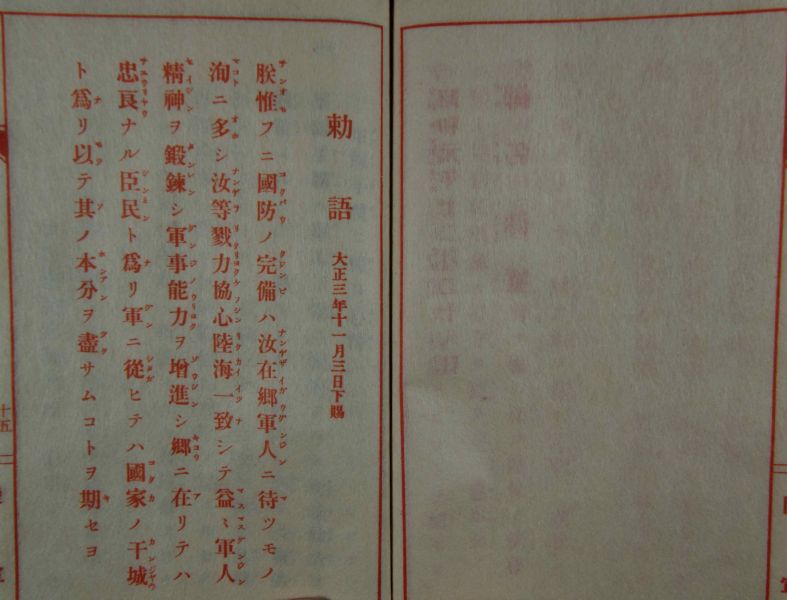 勅語 大正三年十一月三日下賜
朕惟フニ國防ノ完備ハ汝在郷軍人ニ待ツモノ
洵ニ多シ汝等戮力協心陸海一致シテ益〻軍人
精神ヲ鍛鍊シ軍事能力ヲ增進シ郷ニ在リテハ
忠良ナル臣民ト爲リ軍ニ從ヒテハ國家ノ干城
ト爲リ以テ其ノ本分ヲ盡サムコトヲ期セヨ
十五